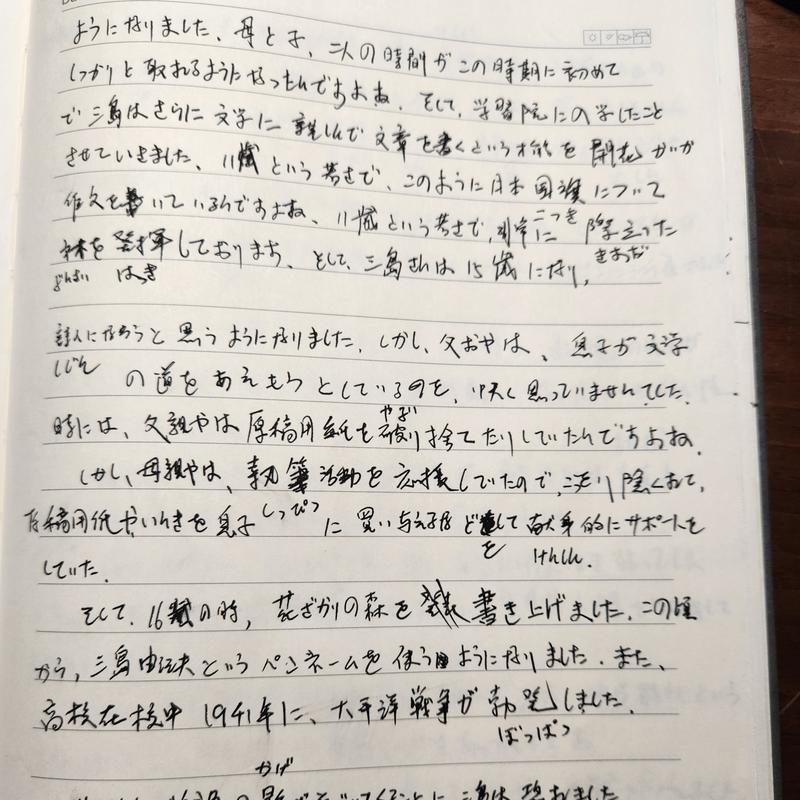 ようになりました、母と子、二人の時間がこの時期に初めて
しっかりと取れるようになったんですよね、そして、学習院に入学したこと
で三島はさらに文学に親しんで文章を書くという才能を開花
させていきました、11歳という若さで、このように日本国旗について
作文を書いているんですよね、11歳という若さで、非常に際立った
きわだ
を発揮しております、そして、三島さんは15歳になり、
はっき
詩人になろうと思うようになりました、しかし、父おやは、息子が文学
しじん
の道をあえもうとしているのを、快く思っていませんでした、
やぶ
時には、父親やは原稿用紙を破り捨てたりしていたんですよね、
しかし、母親やは、執筆活動を応援していたので、こっそり隠くおて、
しっぴつ
原稿用紙やいんきを息子に買い与えるなどをして献身的にサポートを
けんしん
していた、
そして、16歳の時、花ざかりの森を書き上げました、この頃
から、三島由紀夫というペンネームを使うようになりました、また、
高校在校中1941年に、大平洋戦争が勃発しました、
ぼっぱつ
かげ